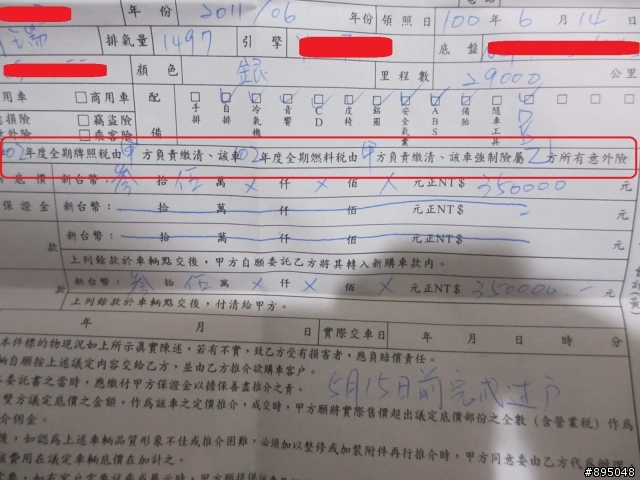 年份 2011/06 年份 領照日 100年6月14日
排氣量 1497 引擎 底盤
顏色 銀 里程數 29000 公里
用車 □商用車 配
手排 自排 冷氣機 音響 CD 皮椅 鋁圈 安全氣囊 ABS 備胎 隨車工具
損險 □竊盜險
意外險 □乘客險 備
02年度全期牌照税由甲方負責繳清、該車02年度全期燃料税由甲方負責繳清、該車強制險屬乙方所有意外險
底價 新台幣：叁拾伍萬X仟X佰X元正NT$350000
保證金 新台幣： 拾 萬 仟 佰 元正NT$ 元
新台幣： 拾 萬 仟 佰 元正NT$ 元
款 上列條款於車輛點交後，甲方自願委託乙方將其轉入新購車款內。
新台幣：叁拾伍萬X仟X佰X元正NT$350000.- 元
款 上列條款於車輛點交後，付清給甲方。
年 月 日 實際交車日 年 月 日 時 分
本件標的物現況如上所示真實陳述，若有不實，致乙方受有損害者，應負賠償責任。
輛自願按上述議定內容交給乙方，並由乙方推介欲購車客戶。
委託書之當時，應繳付甲方保證金以擔保善盡推介之責。
5月15日前完成过户
雙方議定底價之金額，作為該車之定價推介，成交時，甲方願將實際售價超出議定底價部份之全數（含營業税）作為
介佣金。
後，如認為上述車輛品質形象不佳或推介困難，必須加以整修或加裝附件再行推介時，甲方同意委由乙方代為辦理
該費用在議定車輛底價在加計之。
#895048